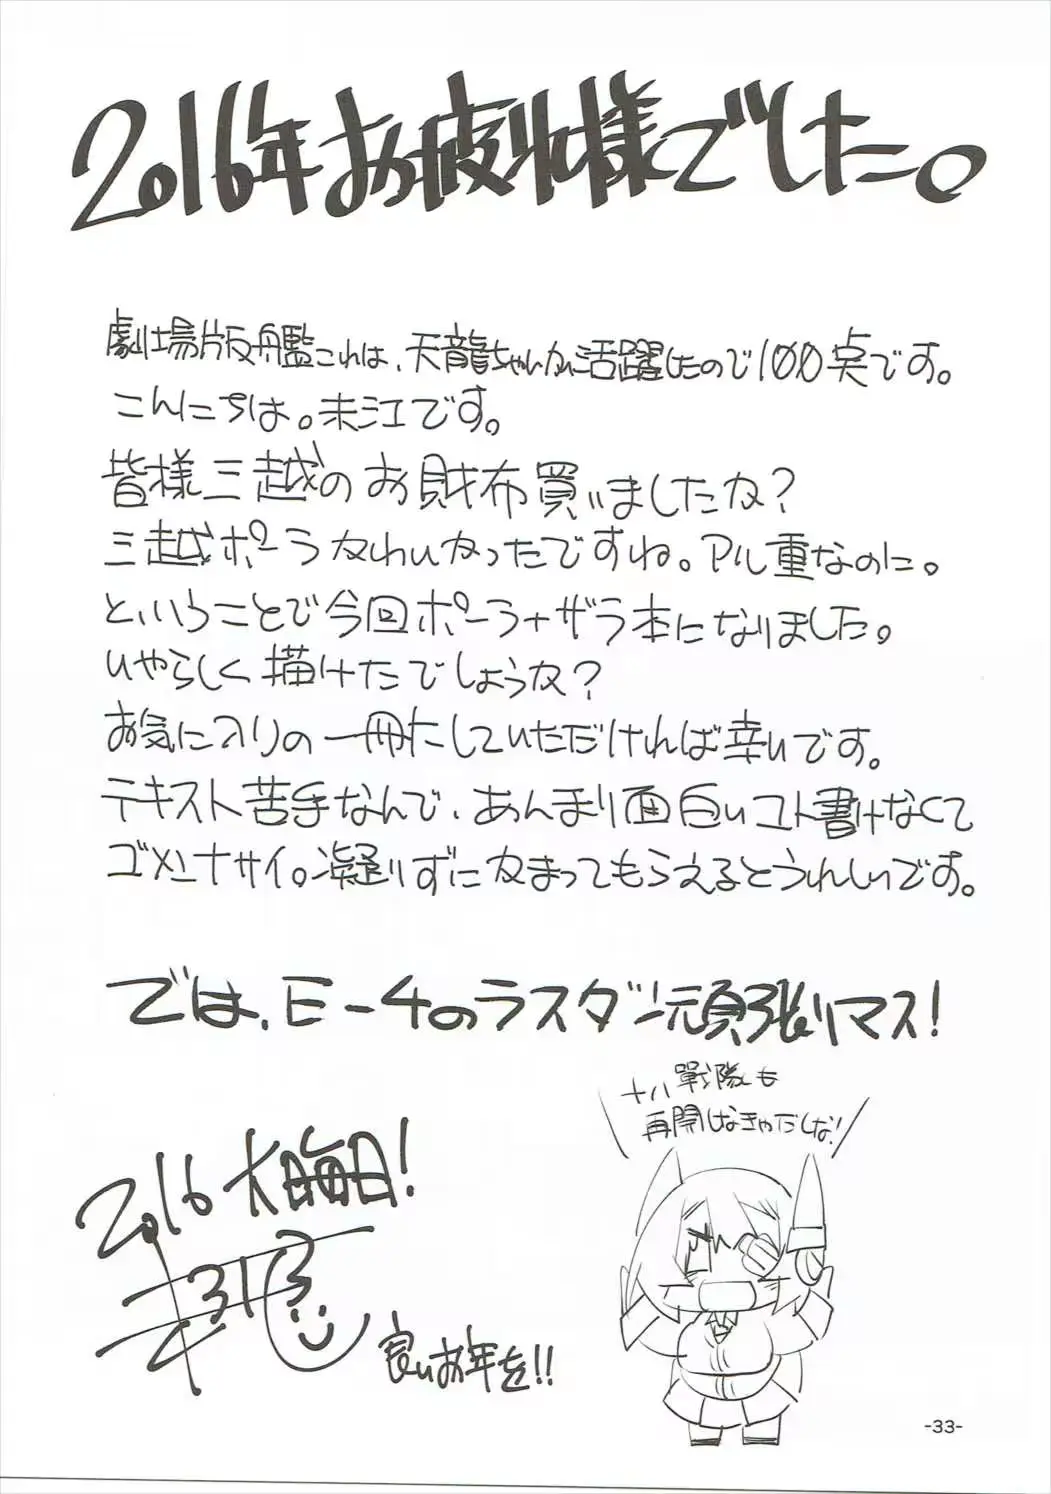 2016年お疲れ様でした。
劇場版艦これは、天龍ちゃんがに活躍したので100点です。
こんにちは。未江です。
皆様三越のお財布買いましたか?
三越ポーラかわいかったですね。アル重なのに。
ということで今回ポーラ+ザラ本になりました。
いやらしく描けたでしょうか?
お気に入りの一冊にしていただければ幸いです。
テキスト苦手なんで、あんまり面白いコト書けなくて
ゴメンナサイ。凝りずにかまってもらえるとうれしいです。
では、E-4のラスダン頑張りマス!
十八戰隊も
再開しなきゃだしな!
2016大晦日!
良いお年を!!
-33-